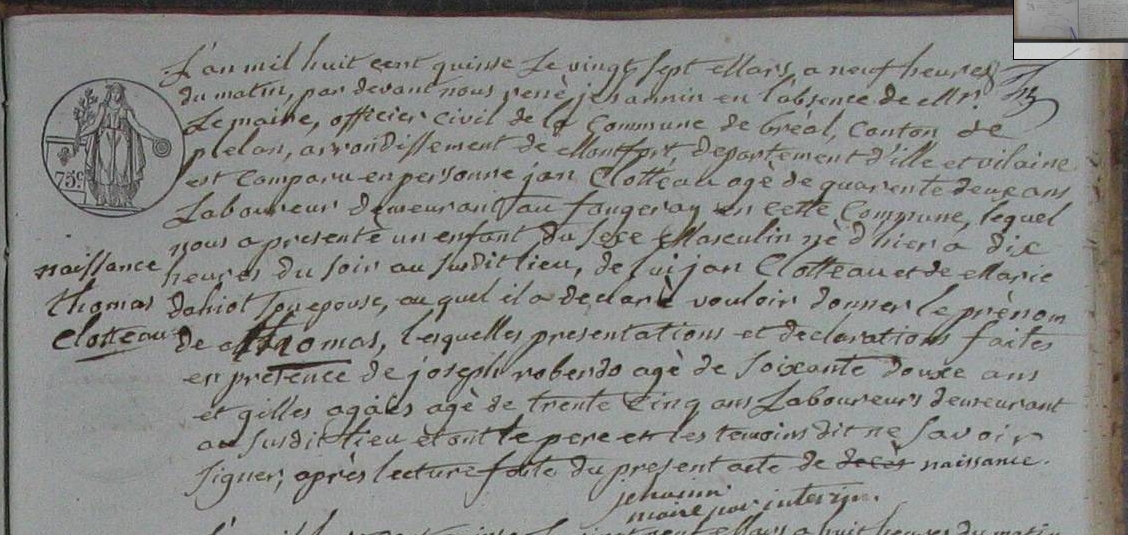 L'an mil huit cent quinse Le vingt sept Mars, a neuf heures
du matin, par devant nous renè jehannin en l'absence de Mr.
Le maire, officier civil de la Commune de breal, Canton de
plelan, arrondissement de Montfort, departement d'ille et vilaine
est Comparu en personne jan Clotteau agè de quarente deux ans
Laboureur demeurant au fougeray en cette Commune, lequel
nous a presentè un enfant du sexe Masculin nè d'hier a dix
naissance
heures du soir au susdit lieu, de lui jan Clotteau et de Marie
thomas
dahiot son epouse, au quel il a declarè vouloir donner le prènom
Clotteau
de thomas, lesquelles presentations et declarations faites
en presence de joseph robendo agè de soixante douxe ans
et gilles agaës agè de trente Cinq ans Laboureurs demeurant
au susdit lieu et ont le pere et les temoins dit ne savoir
signer; après lecture faite du present acte de decès naissance.
jehannin
maire par interim.
75c